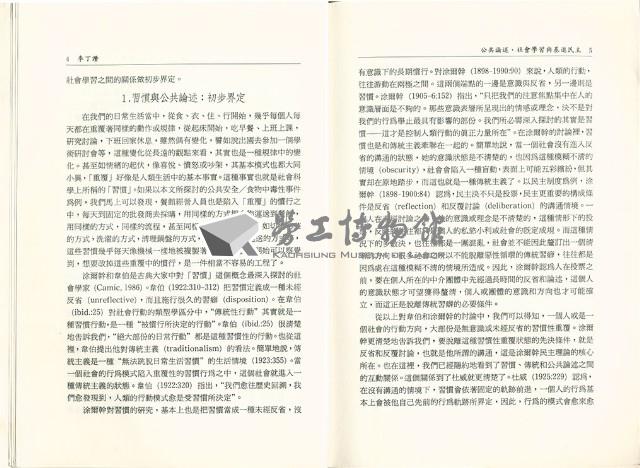 4　李丁讚
社會學習之間的關係做初步界定。
1.習慣與公共論述：初步界定
在我們的日常生活當中，從食、衣、住、行開始，幾乎每個人每
天都在重覆著同樣的動作或規律，從起床開始，吃早餐、上班上課，
研究討論，下班回家休息。雖然偶有變化，譬如說出國去參加一個學
術研討會等，這種變化從長遠的觀點來看，其實也是一種規律中的變
化。甚至如情緒的起伏，像喜悅、憤怒或吵架，其基本模式也都大同
小異，「重覆」好像是人類生活中的基本事實。這種事實也就是社會科
學上所稱的「習慣」。如果以本文所探討的公共安全／食物中毒性事件
為例，我們馬上可以發現，餐飲經營人員也是陷入「重覆」的慣行之
中，每天到固定的批發商去採購，用同樣的方式
用同樣的方式，同樣的流程，甚至同
的方式，洗滌的方式，清理鍋盤的方式，
這些習慣幾乎每天像機械一樣地被複製著
到，想要改掉這些重覆中的慣行，是一件相當不容易的工程了。
涂爾幹和韋伯是古典大家中對「習慣」這個概念最深入探討的社
會學家 (Camic, 1986)。韋伯 (1922:310–312) 把習慣定義成一種未經
反省 (unreflective)，而且施行長久的習癖 (disposition)。在韋伯
(ibid.:25) 對社會行動的類型學區分中，“傳統性行動”其實就是一
種習慣行動，是一種“被慣行所決定的行動”。韋伯 (ibid.:25) 很清楚
地告訴我們，“絕大部份的日常行動”都是這種習慣性的行動。也從這
裡，韋伯提出他對傳統主義 (traditionalism) 的看法。簡單地說，傳
統主義是一種“無法跳脫日常生活習慣”的生活情境 (1923:355)。當
一個社會的行為模式陷入重覆性的習慣行為之中，這個社會就進入一
種傳統主義的狀態。韋伯 (1922:320) 指出，“我們愈往歷史回溯，我
們愈發現到，人類的行動模式愈是受習慣所決定”。
涂爾幹對習慣的研究，基本上也是把習慣當成一種未經反省，沒
公共論述，社會學習與基進民主　5
有意識下的長期慣行。對涂爾幹 (1898-1990:90) 來說，人類的行動，
往往游動在兩極之間。這兩個端點的一邊是意識與反省，另一邊則是
習慣。涂爾幹 (1905-6:152) 指出，“只把我們的注意焦點集中在人的
意識層面是不夠的。那些意識表層所呈現出的情感或理念，決不是對
我們的行為舉止最具有影響的部份。我們所必需深入探討的其實是習
慣——這才是控制人類行動的真正力量所在”。在涂爾幹的討論裡，習
慣也是和傳統主義牽聯在一起的。簡單地說，當一個社會沒有進入反
省的溝通的狀態，她的意識狀態是不清楚的，也因為這種模糊不清的
情境 (obscurity)，社會會陷入一種盲動，表面上可能五彩繽紛，但其
實卻在原地踏步，而這也就是一種傳統主義了。以民主制度為例，涂
爾幹 (1898-1900:84) 認為，民主決不只是投票，民主更重要的構成條
件是反省 (reflection) 和反覆討論 (deliberation) 的溝通情境。一
個人在
人的私慾小利或社會的既定成規。而這種情
社會並不能因此釐訂出一個清
因為處在這種模糊不清的情境所造成。因此，涂爾幹認為人在投票之
前，要在個人所在的中介團體中先經過長時間的反省和論述，這個人
的意識狀態才可望獲得釐清，個人或團體的意識和方向也才可能確
立，而這正是脫離傳統習癖的必要條件。
從以上對韋伯和涂爾幹的討論中，我們可以得知，一個人或是一
個社會的行動方向，大部份是無意識或未經反省的習慣性重覆。涂爾
幹更清楚地告訴我們，要脫離這種習慣性重覆狀態的先決條件，就是
反省和反覆討論，也就是他所謂的溝通，這是涂爾幹民主理論的核心
所在。也在這裡，我們已經隱約地看到了習慣、傳統和公共論述之間
的互動關係。這個關係到了杜威就更清楚了。杜威 (1925:229) 認為，
在沒有溝通的情境下，習慣會依著固定的軌跡前進，一個人的行為基
本上會被他自己先前的行為軌跡所界定，因此，行為的模式會愈來愈
勞工博物館
KAOHSIUNG MUSEUM